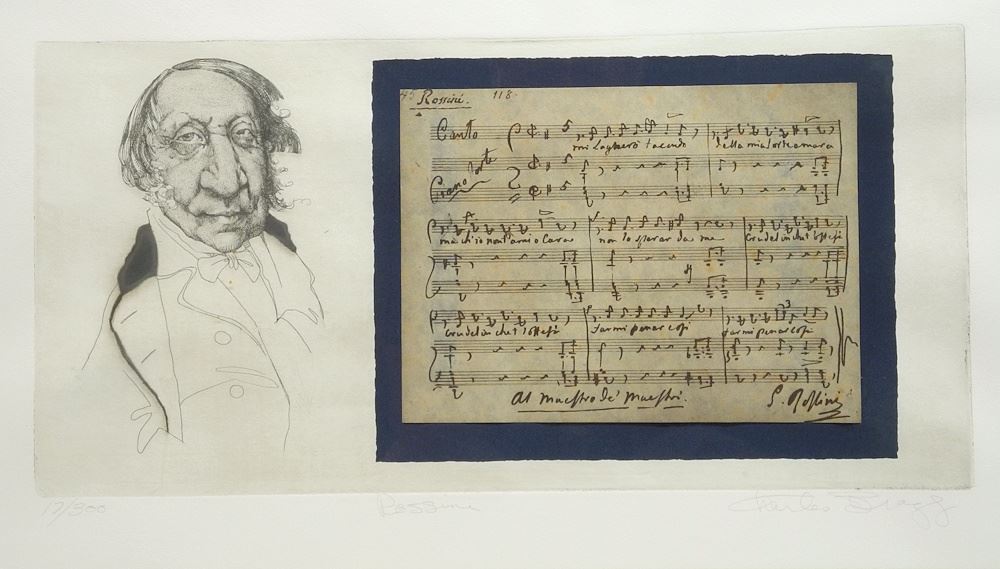 Rossini. 118.
Canto
mi lagnerò tacendo della mia sorte amara
Piano forte
ma ch'io non t'ami o Cara non lo sperar da me Crudel in che t'offesi
Crudel in che t'offesi farmi penar così farmi penar così
Al Maestro de' Maestri.
G. Rossini
12/300 Rossini Charles Bragg